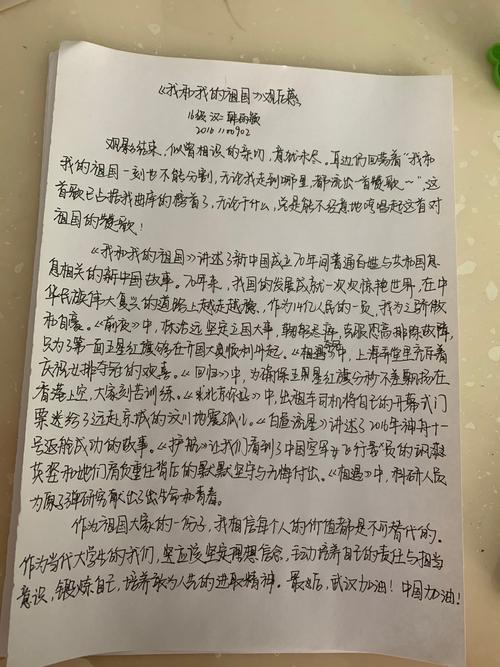 《我和我的祖国》观后感
16级 汉二 韩
2016110902
观影结束，似曾相识的亲切，意犹未尽。耳边仍回荡着“我和
我的祖国一刻也不能分割，无论我走到哪里，都流出一首赞歌～”，这
首歌已占据我曲库的榜首了，无论干什么，总是能不经意地哼唱起这首对
祖国的赞歌！
《我和我的祖国》讲述了新中国成立70年间普通百姓与共和国息
息相关的新中国故事。70年来，我国的发展成就一次次惊艳世界，在中
华民族伟大复兴的道路上越走越稳，作为14亿人民的一员，我为之骄傲
和自豪。《前夜》中，林治远坚定立国大事，克服困难排除故障，
只为了第一面五星红旗能够在开国大典顺利升起。《相遇》中，上海弄堂里充斥着
庆祝女排夺冠的欢喜。《回归》中，为确保五星红旗分秒不差飘扬在
香港上空，大家刻苦训练。《北京你好》中，出租车司机将自己的开幕式门
票送给了远赴京城的汶川地震孤儿。《白昼流星》讲述了2016年神舟十一
号返航成功的故事。《护航》让我们看到了中国空军女飞行员的飒爽
英姿和她们肩负重任背后的默默坚守与无悔付出。《相遇》中，科研人员
为原子弹研究献出了生命和青春。
作为祖国大家的一份子，我相信每个人的价值都是不可替代的。
作为当代大学生的我们，更应该坚定理想信念，主动培养自己的责任与担当
意识，锻炼自己，培养敢为人先的进取精神。最后，武汉加油！中国加油！